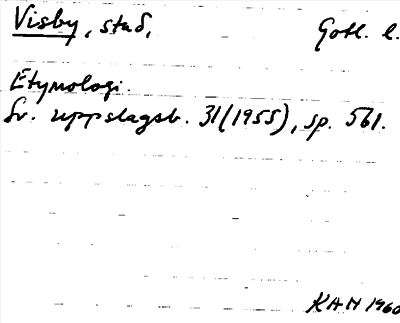 Visby, stad, Gotl. l.
Etymologi.
Sv. uppslagsb. 31(1955), sp. 561.
KAH 1960